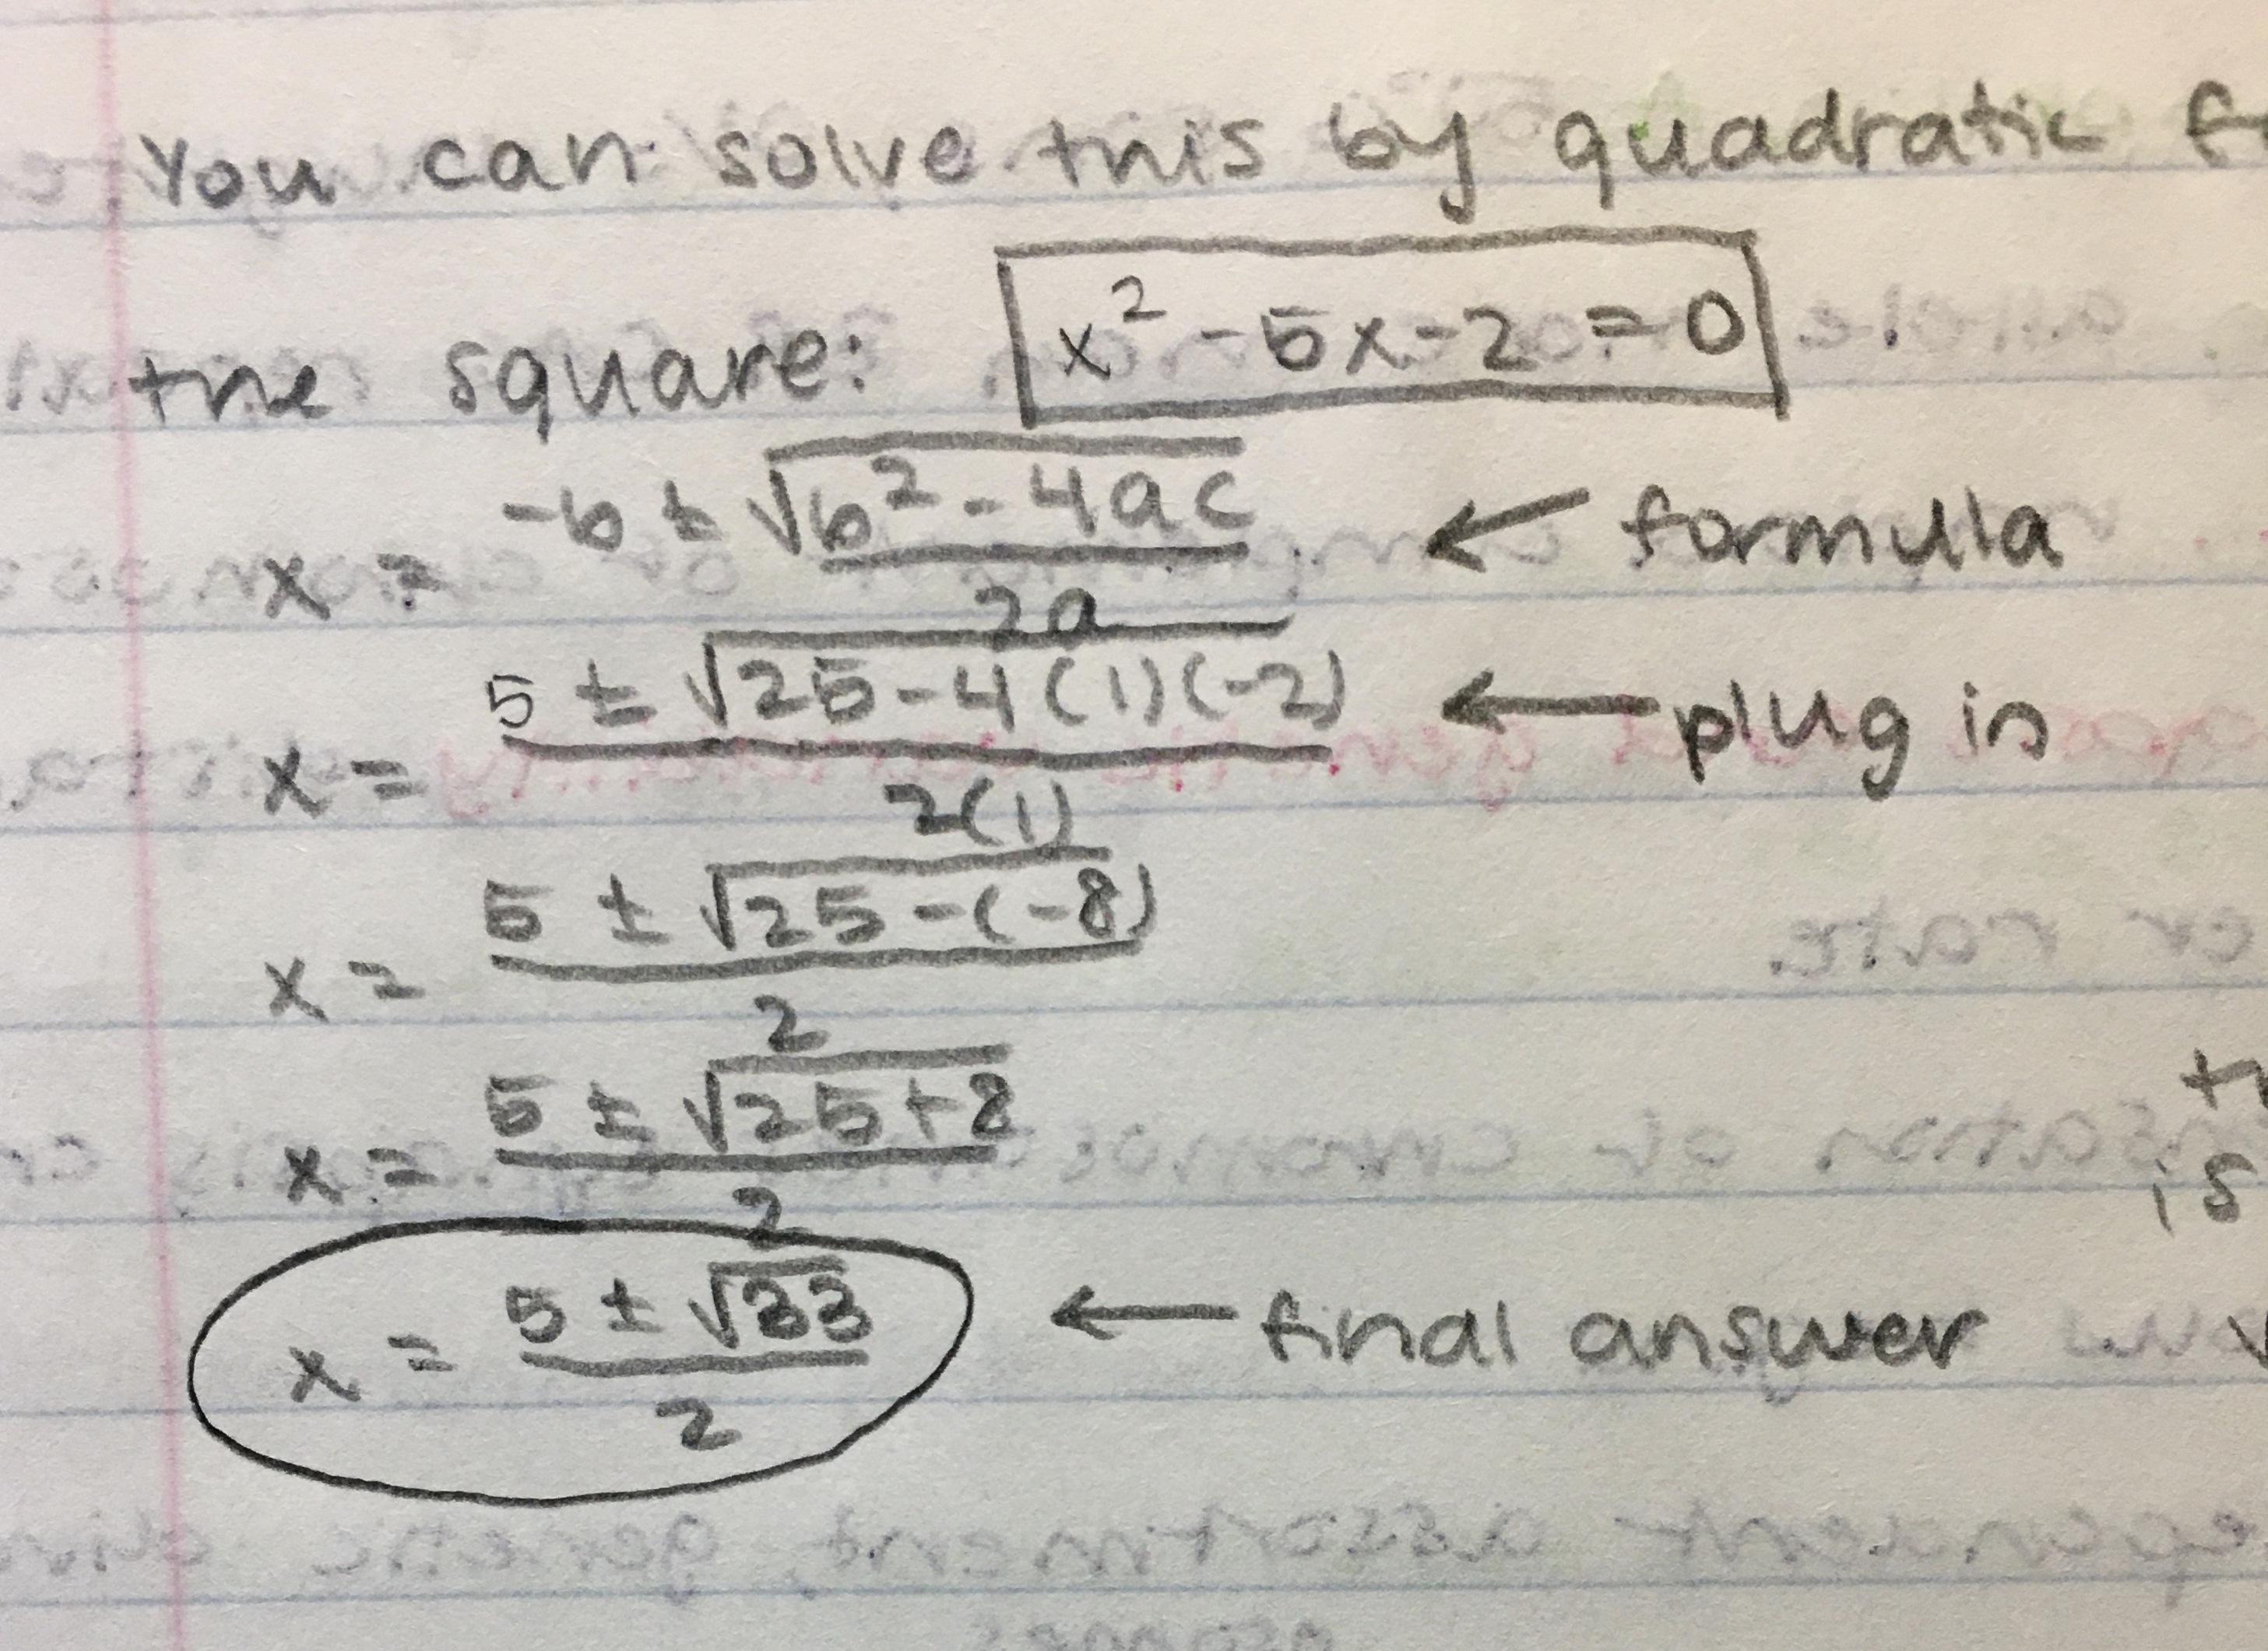 You can solve this by quadratic
the square: x² - 5x - 2 = 0
x = (-b ± √(b² - 4ac)) / 2a ← formula
x = (5 ± √(25 - 4(1)(-2))) / 2(1) ← plug in
x = (5 ± √(25 - (-8))) / 2
x = (5 ± √(25 + 8)) / 2
is
x = (5 ± √33) / 2 ← final answer